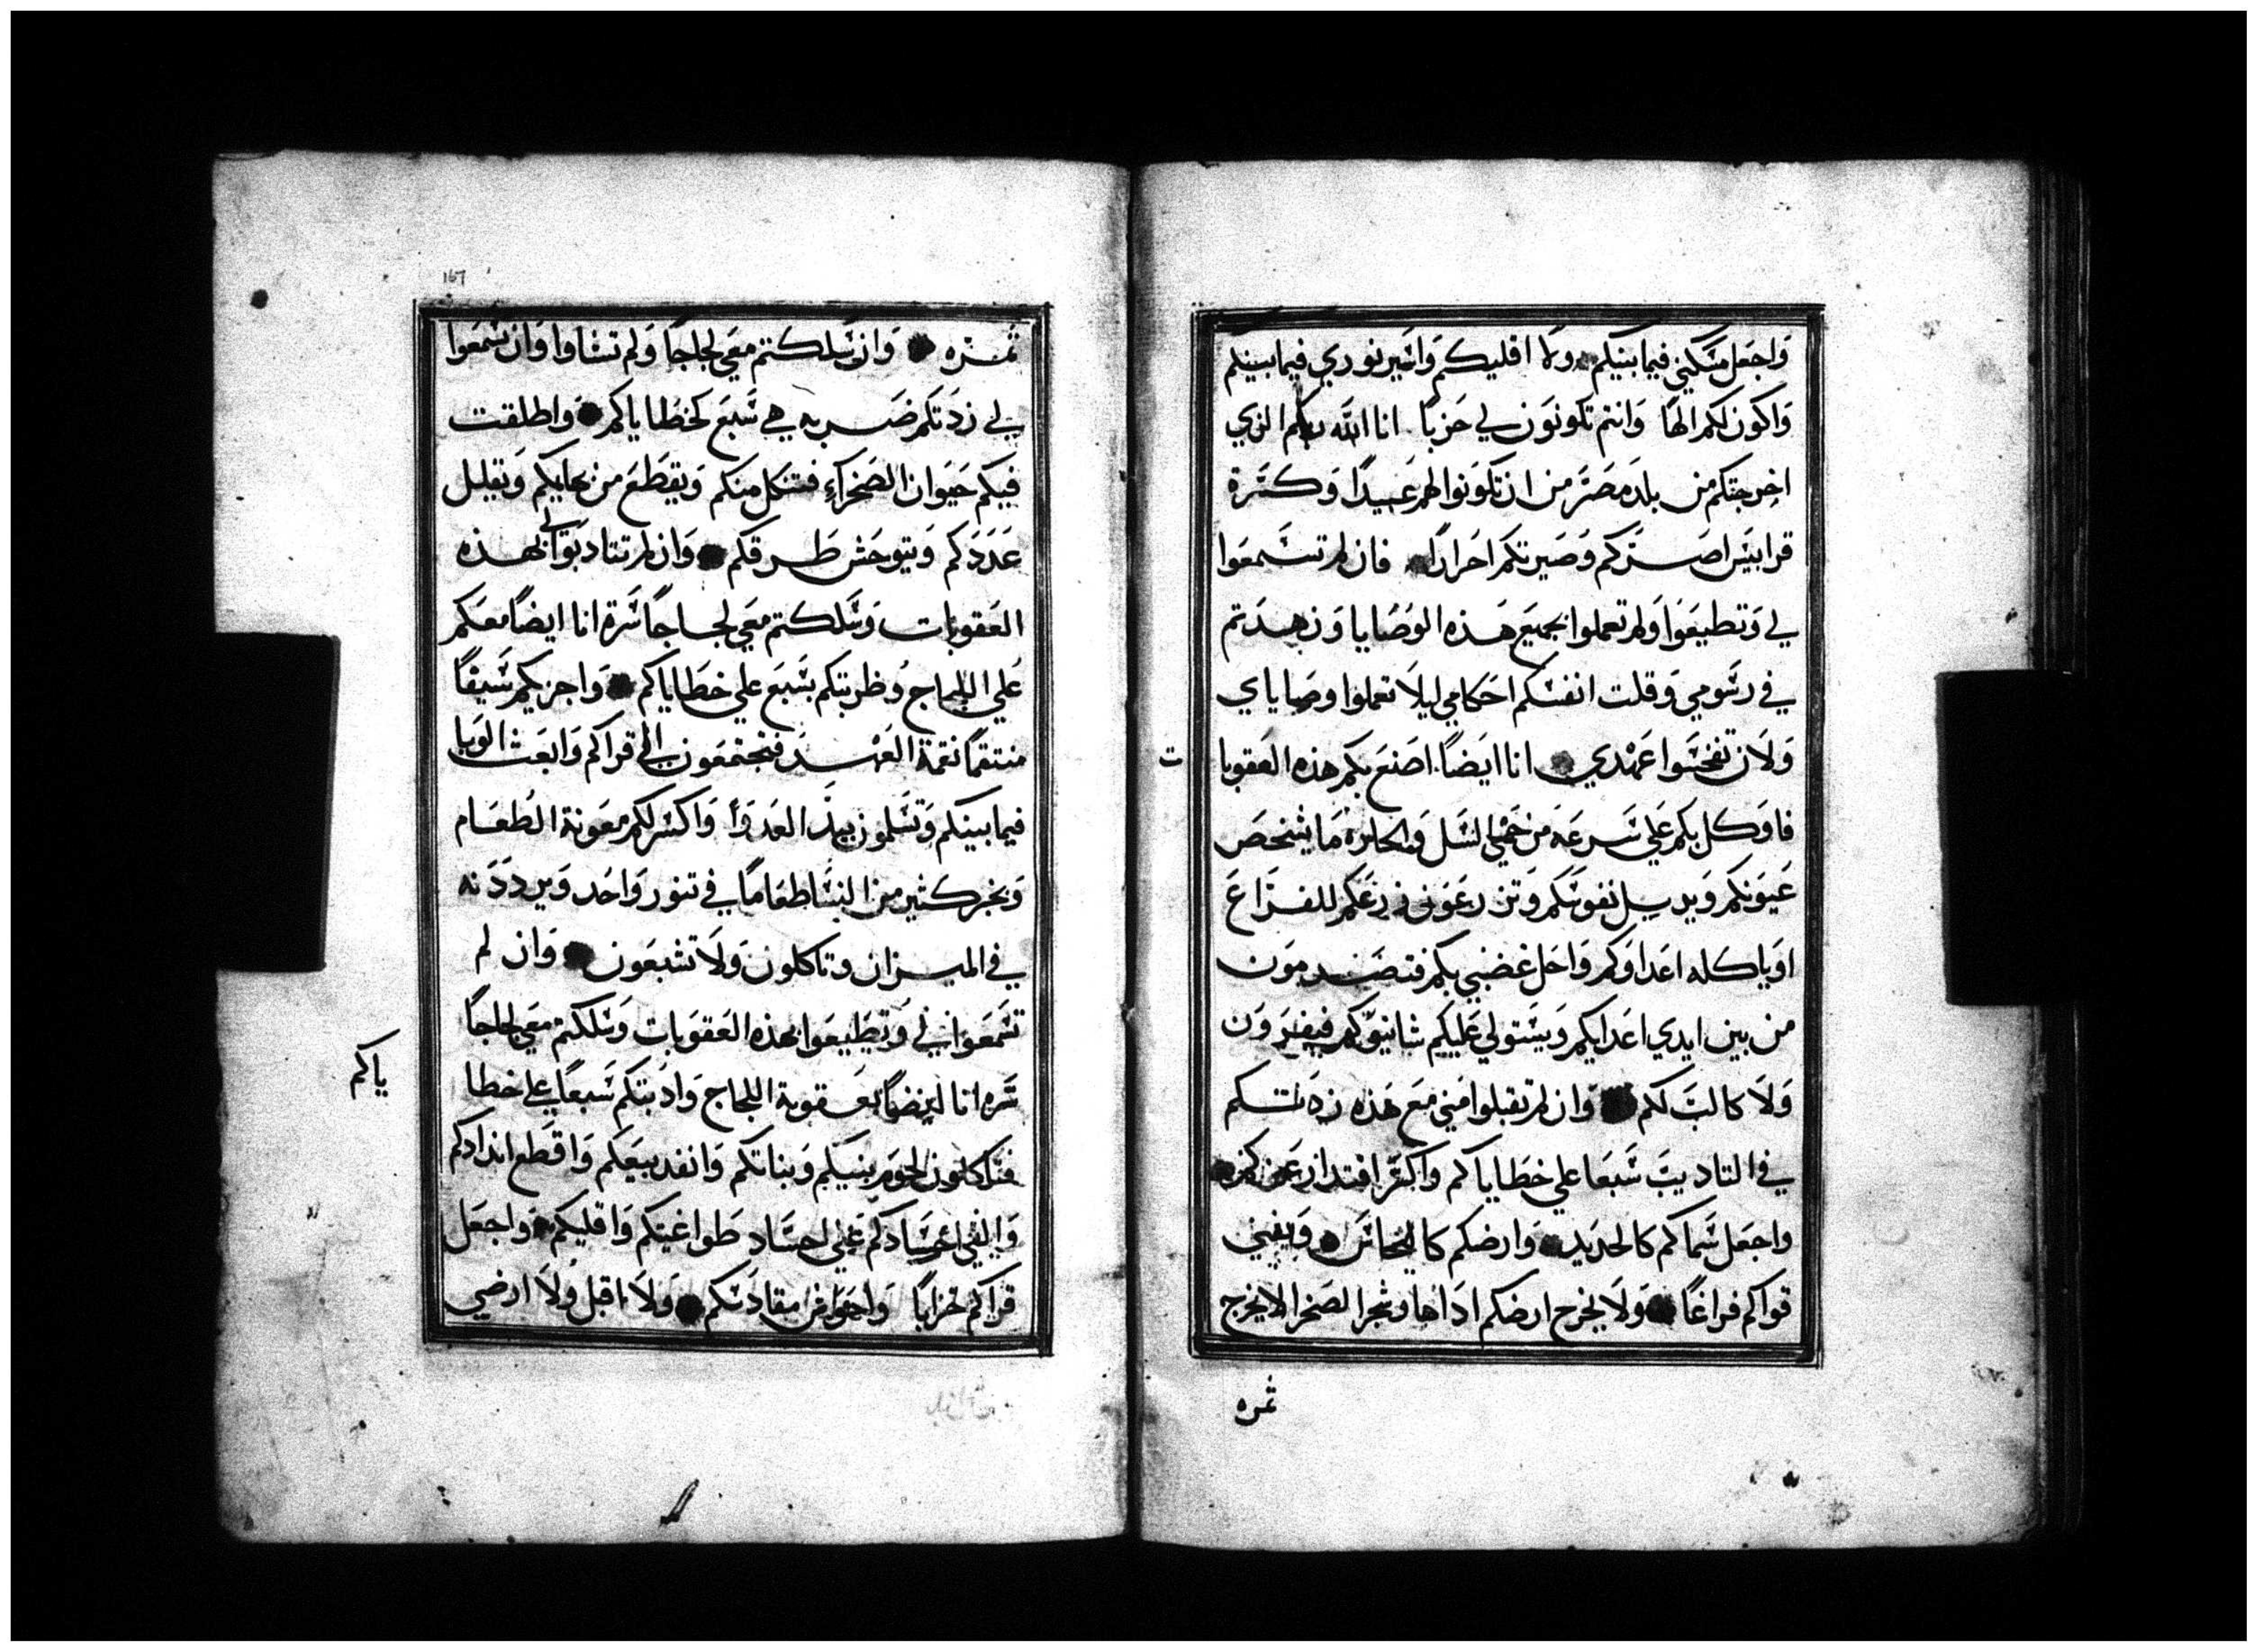 وَاجعَل مسَكني فيما بينكم ولا اقليكم وَاسَير نوري فيما بينكم
وَاكون لكم الهًا وَانتم تكونوَن لي حَزبًا انا الله ربكم الذي
اخرجتكم من بلد مصَر من ان تكوَنوا لهم عَبيدًا وَكسَرة
قرابيسَ اصَركم وَصَيرتكم احَرارًا فان لم تسَمعَوا
لي وَتطيعَوا وَلم تعملوا بجميَع هَذه الوَصَايا وَزهدَتم
في رسَومي وَقلت انفسَكم احَكامي ليلا تعملوا وصَاياي
وَلان تفخسَوا عَهدي انا ايَضًا اصَنعَ بكم هذه العَقوبا
ت
فاوَكل بكم علي سَرعَة من حَمي السَل وَالحارة مَا يشخصَ
عَيوَنكم وَيرسِل نفوسَكم وَتزرعَوَن زرعَكم للفرَاغَ
اوَياكله اعَداوَكم وَاحَل غضبي بكم فتصَدمون
من بين ايدي اعَدايكم وَيسَتولي عَليكم شانيوَكم فيفروَن
وَلا طالبَ لكم وَان لم تقبلوا مَني معَ هَذه زدَتكم
في التاديبَ سَبعَا علي خطاياكم واكسَر اقتدار عَزكم
واجعَل سَماكم كالحَديد وَارضكم كالنحَاسَ وَيفني
قواكم فراغًا وَلا يخرج ارضكم ادَاها وشجر الصَحرا لا يخرج
ثمره
ثمَره وَان سَلكتم معَي لجاجَا وَلم تشاوا وَان تسَمعَوا
لي زدَتكم ضَربه هي سَبعَ كخطاياكم وَاطلقت
فيكم حَيوَان الصَحرَاء فتنكل منكم وَيقطَعَ من بهايكم وَيقلل
عَدَدَكم وَيتوحَش طَرقكم وَان لم تتادبوا لي بهذه
العَقوبات وَسَلكتم معَي لجاجَاً سَرة انا ايضَاً معَكم
عَلي اللجاج وَضربتكم بسَبعَ علي خطاياكم وَاجزيكم سَيفاً
منتقمًا نقمة العَهدَ فتجتمعَون الي قراكم وَابعَث الوَبا
فيما بينكم وَتسَلمون بيد العَدوَا وَاكسَر لكم معَونة الطعَام
وَيخبز كثير من النسَا طعَامَا في تنور وَاحَد وَيرددَنه
في الميزان وتاكلون وَلا تشبعَون وَان لم
تسَمعَوا لي وَتطَيعَوا بهذه العَقوبات وَسَلكتم معَي لجاجاً
سَره انا ايضَاً بعَقوبة اللجاج وَادَبتكم سَبعَاً علي خطا
ياكم
فتاكلون لحَوم بنيَكم وَبناتكم وَانفد بيعَكم وَاقطَع اندادكم
وَالقي اجسَادكم عَلي اجسَاد طَواغيتكم وَاقليكم وَاجعَل
قراكم خرابًا وَاحَوا من مقادسَكم وَلا اقبل وَلا ارضي